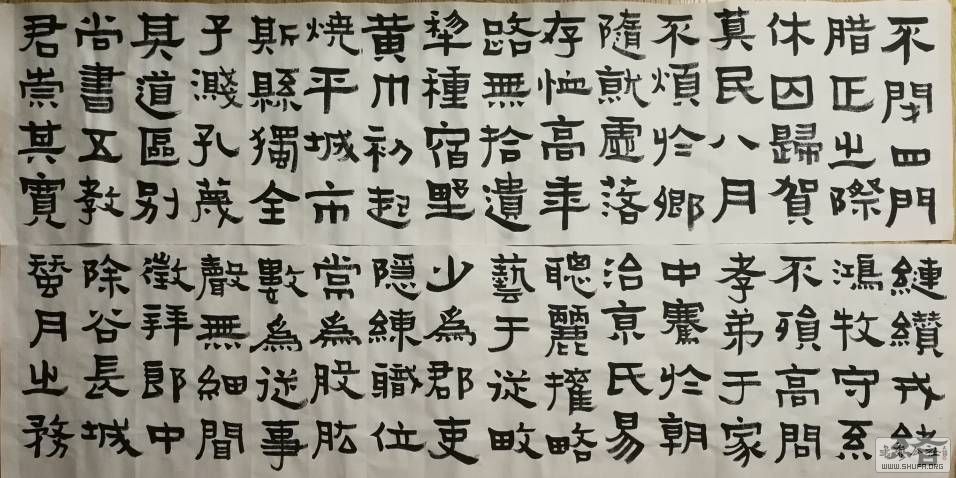 不閉四門
腊正之際
休囚歸賀
民八月
不煩於鄉
隨就虛落
存恤高年
路無拾遺
犁種宿野
黃巾初起
燒平城市
斯縣獨全
子濺孔蔑
其道區別
尚書五教
君崇其寬
纏纘戎緒
鴻牧守系
不殞高問
孝弟于家
中騫於朝
治京氏易
聰麗權略
藝于從畋
少為郡吏
隱練職位
常為股肱
數為從事
聲無細聞
徵拜郎中
除谷長城
蚕月之務
WWW.SHUFA.ORG